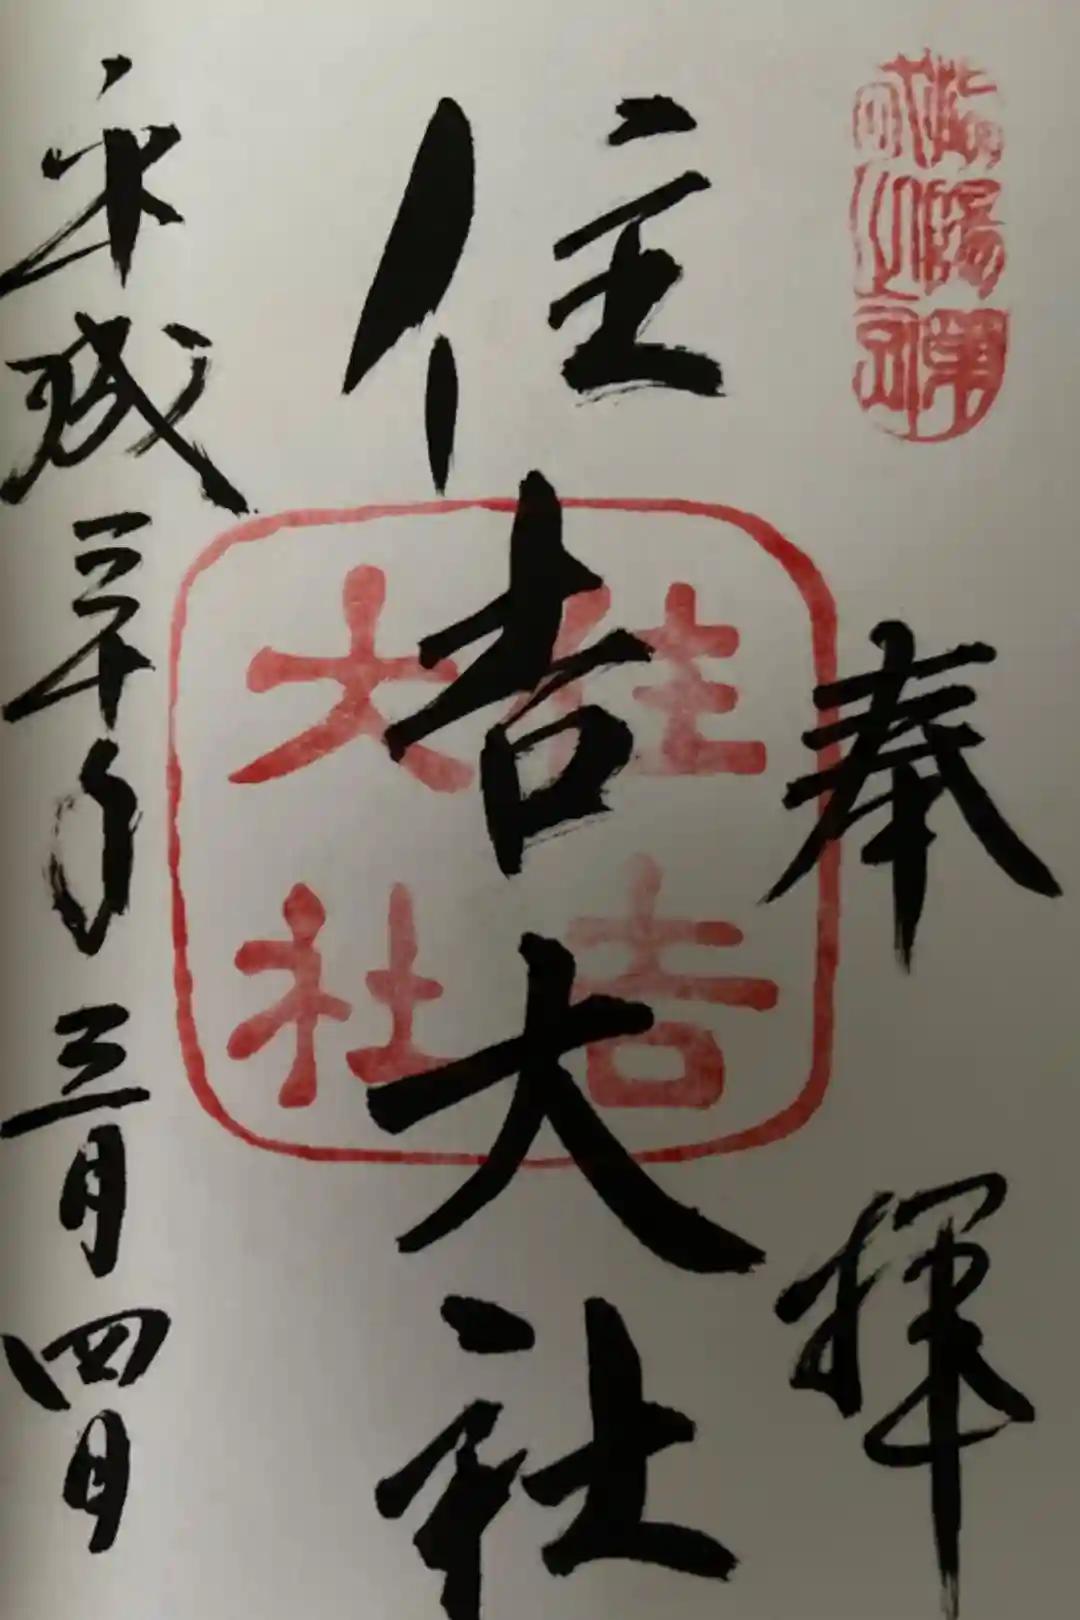 奉拝
住吉大社
住吉大社
平成三十年三月四日